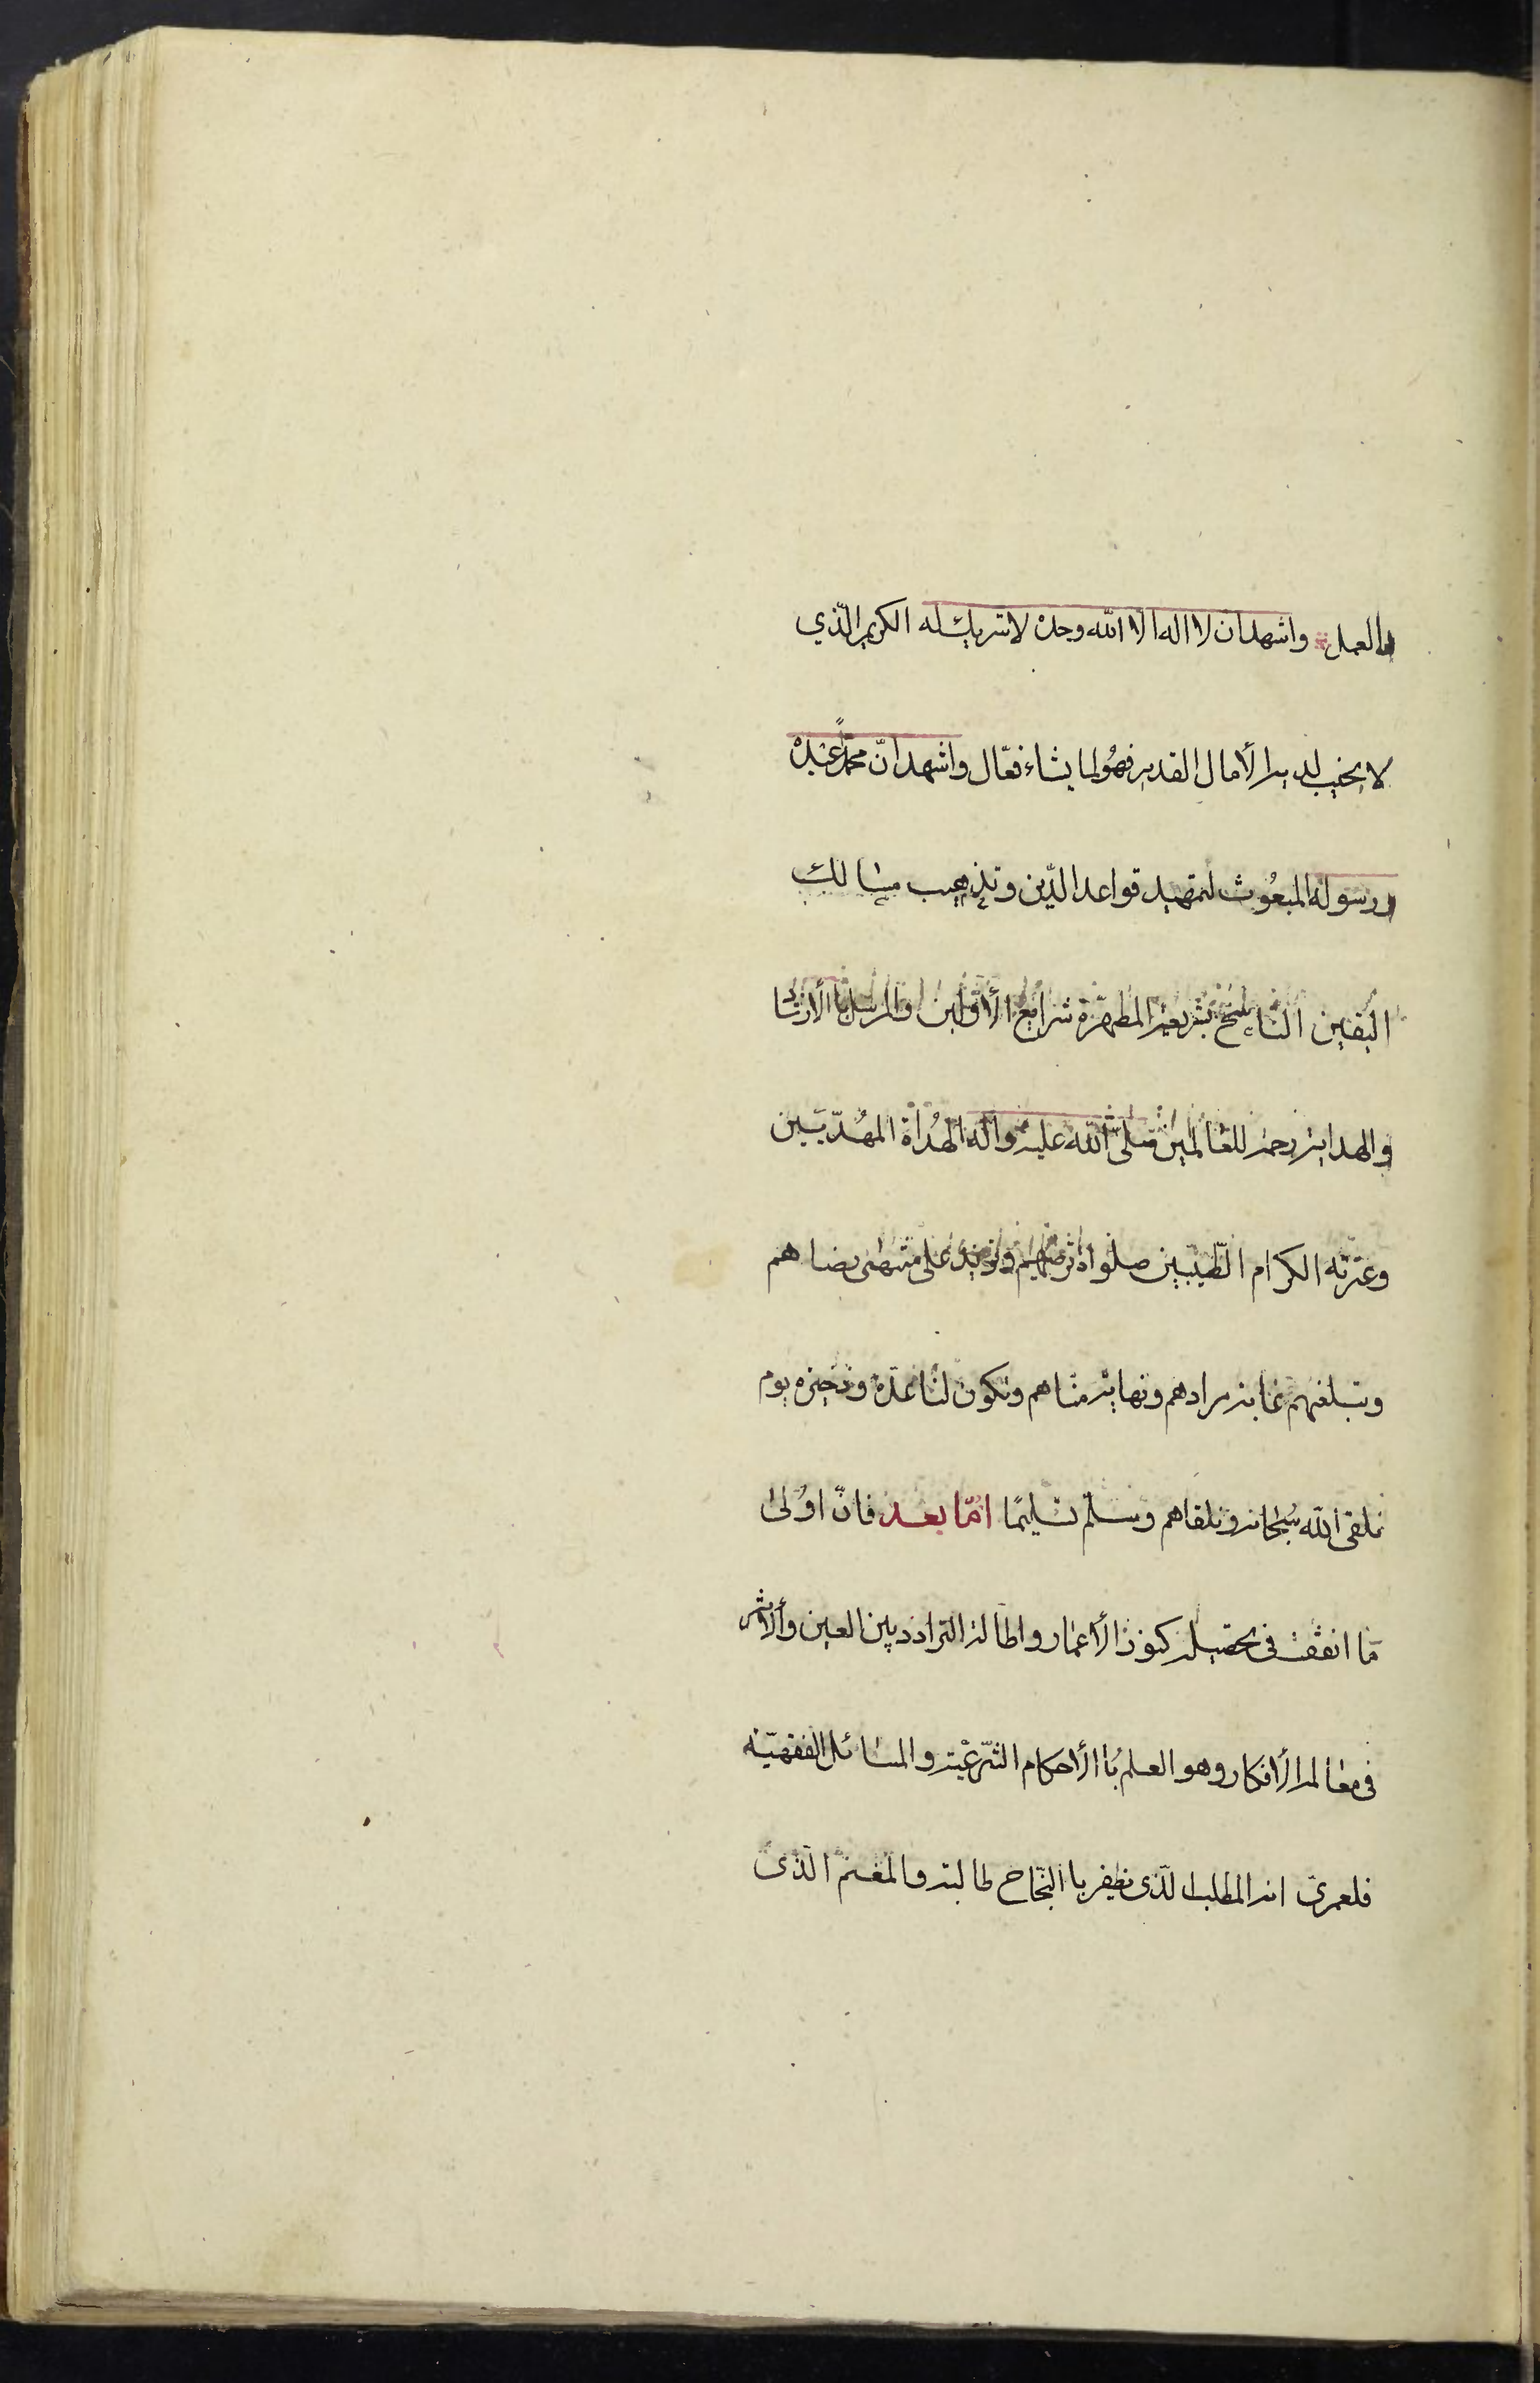 والعمل واشهد ان لا اله الا الله وحده لا شريك له الكريم الّذي
لا يخيب لديه الأمال القدير فهُو لما يشاء فعّال واشهد انّ محمّداً عبده
ورسوله المبعُوث لتمهيد قواعد الدّين وتذهيب مسالك
اليقين الناسخ بشريعته المطهّرة شرايع الأوّلين والمرسل باالأرشاد
والهداية رحمة للعالمين صلّى الله عليه واله الهُداة المهُديّين
وعترته الكرام الطّيّبين صلواة ترضيهم وتزيد على منتهى رضاهم
وتبلغهم غاية مرادهم ونهاية مناهم وتكون لنا عدّة وذخيرة يوم
نلقى الله سُبحانه ونلقاهم وسلّم تسليمًا امّا بعد فانّ اوُلى
مٰا انفقت فى تحصيله كنوز الأعمار واطالة التردد بين العين والأثر
فى معالم الأفكار وهو العلم باالأحكام الشّرعيّة والمسائل الفقهيّة
فلعمرى انه المطلب الّذى يظفر باالنّجاح طالبه والمغنم الّذى